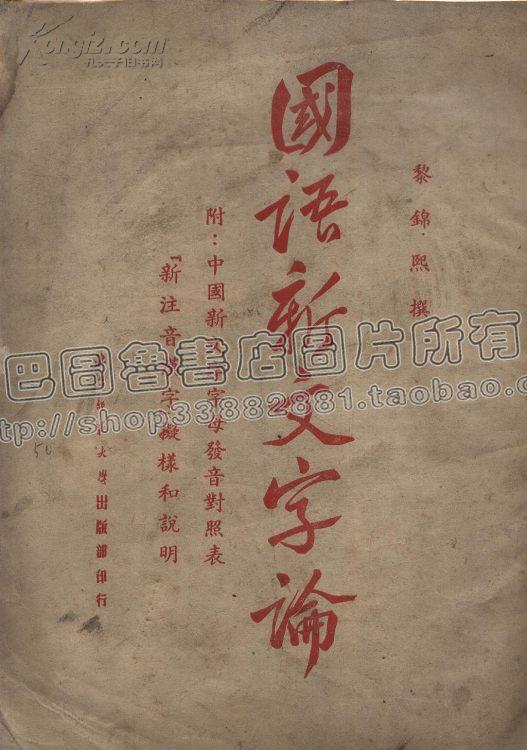 黎錦熙撰
國語新文字論
附：中國新文字字母發音對照表
『新注音漢字』擬樣和說明
大學出版部印行
Kongfz.com
孔夫子旧书网
巴圖魯書店圖片所有
http://shop33882881.taobao.com